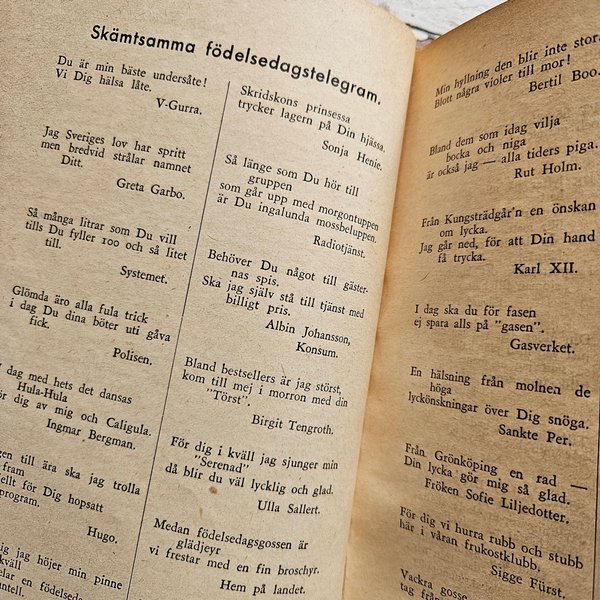 Skämtsamma födelsedagstelegram.
Du är min bäste undersåte!
Vi Dig hälsa låte.
V-Gurra.
Jag Sveriges lov har spritt
men bredvid strålar namnet
Ditt.
Greta Garbo.
Så många litrar som Du vill
tills Du fyller 100 och så litet
till.
Systemet.
Glömda äro alla fula trick
i dag Du dina böter uti gåva
fick.
Polisen.
dag med hets det dansas
Hula-Hula
för dig av mig och Caligula.
Ingmar Bergman.
till ära ska jag trolla
fram
för Dig hopsatt
program.
Hugo.
jag höjer min pinne
en födelsedag
Skridskons prinsessa
trycker lagern på Din hjässa.
Sonja Henie.
Så länge som Du hör till
gruppen
som går upp med morgontuppen
är Du ingalunda mossbeluppen.
Radiotjänst.
Behöver Du något till gäster-
nas spis.
Ska jag själv stå till tjänst med
billigt pris.
Albin Johansson,
Konsum.
Bland bestsellers är jag störst,
kom till mej i morron med din
"Törst".
Birgit Tengroth.
För dig i kväll jag sjunger min
"Serenad"
då blir du väl lycklig och glad.
Ulla Sallert.
Medan födelsedagsgossen är
glädjeyr
vi frestar med en fin broschyr.
Hem på landet.
Min hyllning den blir inte stor
Blott några violer till mor!
Bertil Boo.
Bland dem som idag vilja
bocka och niga
är också jag — alla tiders piga.
Rut Holm.
Från Kungsträdgår'n en önskan
om lycka.
Jag går ned, för att Din hand
få trycka.
Karl XII.
I dag ska du för fasen
ej spara alls på "gasen".
Gasverket.
En hälsning från molnen de
höga
lyckönskningar över Dig snöga.
Sankte Per.
Från Grönköping en rad —
Din lycka gör mig så glad.
Fröken Sofie Liljedotter.
För dig vi hurra rubb och stubb
här i våran frukostklubb.
Sigge Fürst.
Vackra gosse
tag från